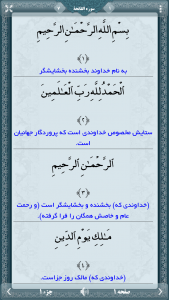 سوره الفاتحة
بِسْمِ اللَّهِ الرَّحْمَٰنِ الرَّحِيمِ
﴿١﴾
به نام خداوند بخشنده بخشایشگر
الْحَمْدُ لِلَّهِ رَبِّ الْعَالَمِينَ
﴿٢﴾
ستایش مخصوص خداوندی است که پروردگار جهانیان
است.
الرَّحْمَٰنِ الرَّحِيمِ
﴿٣﴾
(خداوندی که) بخشنده و بخشایشگر است (و رحمت
عام و خاصش همگان را فرا گرفته).
مَالِكِ يَوْمِ الدِّينِ
﴿٤﴾
(خداوندی که) مالک روز جزاست.
صفحه ۱
جزء ۱